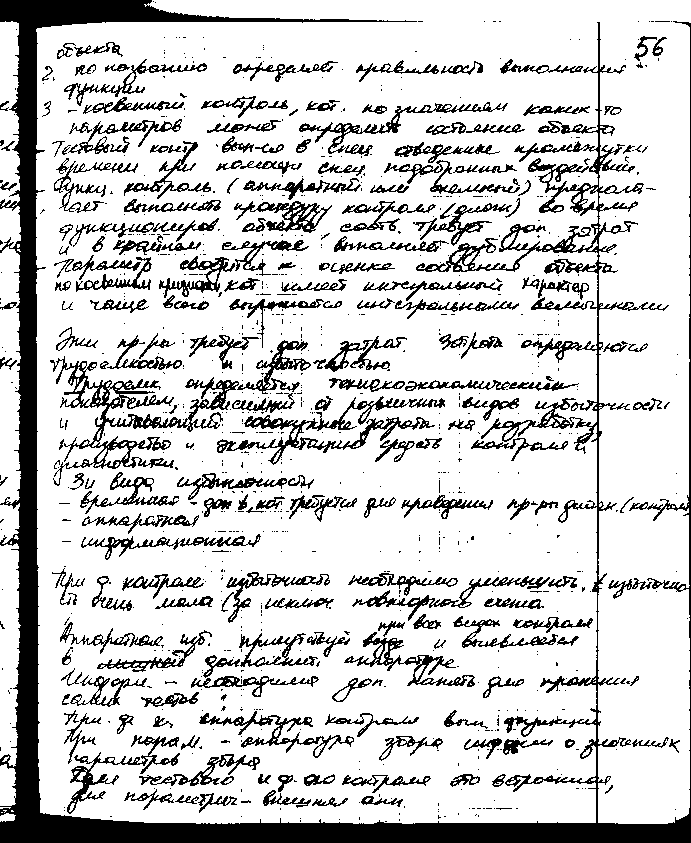 56
объекта
2. по названию определяет правильность выполнения
функции
3 - косвенный контроль, кот. по значениям каких-то
параметров может определить состояние объекта
- Тестовый контр вып-ся в спец отведенные промежутки
времени при помощи спец. подобранных воздействий.
- Функц. контроль. (аппаратный или схемный) предпола-
гает выполнять процедуру контроля (диагн) во время
функционир. объекта, требует доп затрат
и в крайнем случае выполняет дублирование
- Параметр сводится к оценке состояния объекта
по косвенным признакам, кот имеет интегральный характер
и чаще всего выражается интегральными величинами
Эти пр-ры требует доп затрат. Затраты определяются
трудоемкостью и избыточностью
Трудоемк определяется техникоэкономическим
показателем, зависимый от различных видов избыточности
и учитывающий совокупные затраты на разработку
производство и эксплуатацию средств контроля и
диагностики.
3и вида избыточности
- временная - доп t, кот требуется для проведения пр-ры диагн. (контроля
- аппаратная
- информационная
При ф. контроле избыточность необходимо уменьшить. t избыточно
сть очень мала (за исключ. повторного счета
при всех видах контроля
Аппаратная изб. присутствует и выявляется
в дополнит. аппаратуре
Информ. - необходима доп. память для хранения
самих тестов
При ф. к. аппаратура контроля вып. функций
При парам. - аппаратура сбора информ о значениях
параметров
Для тестового и ф-го контроля это встроенная,
для параметрич - внешняя апп.